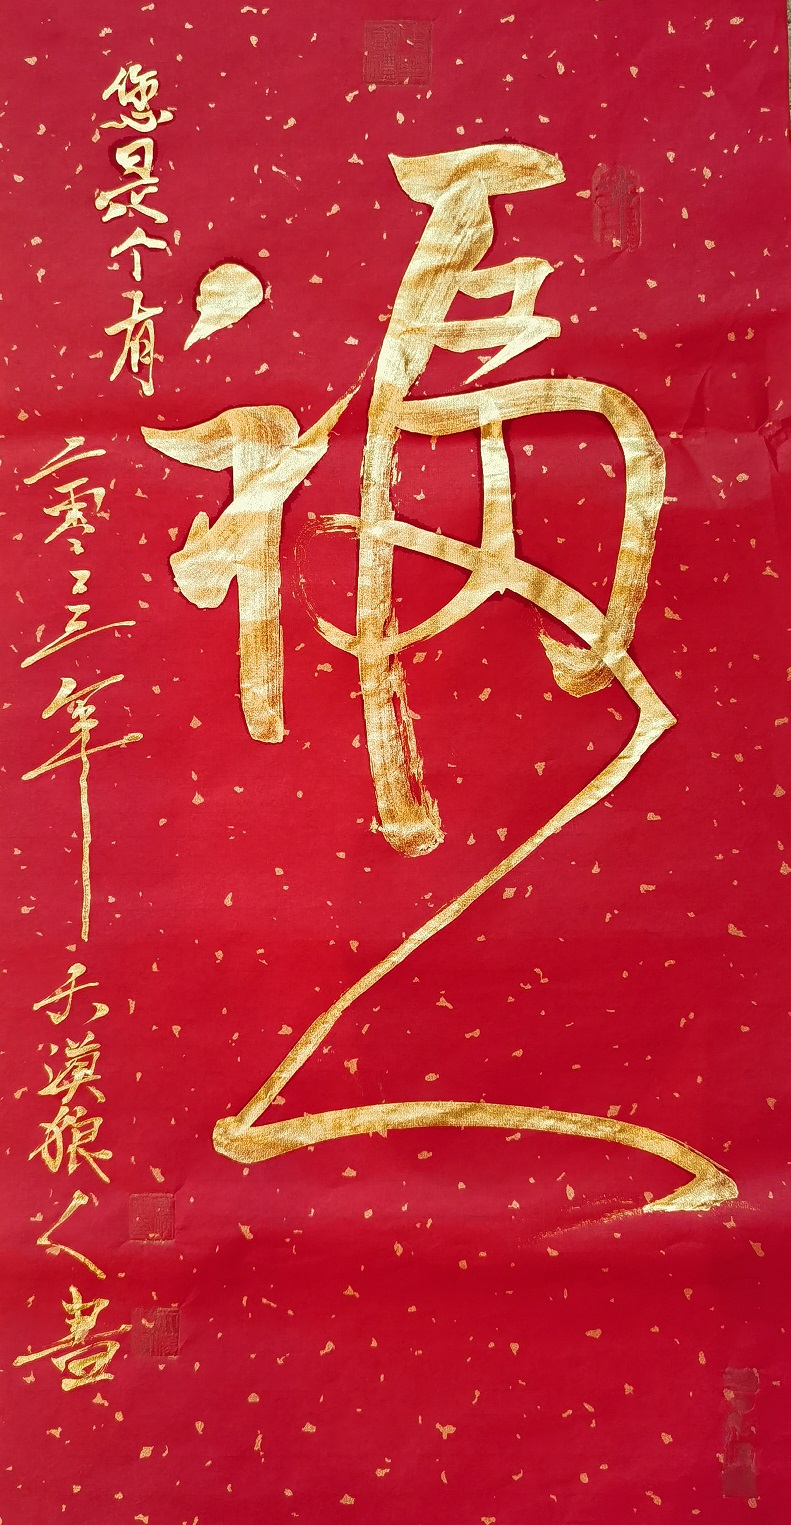 福
您是个有
二零二三年天漠狼人書